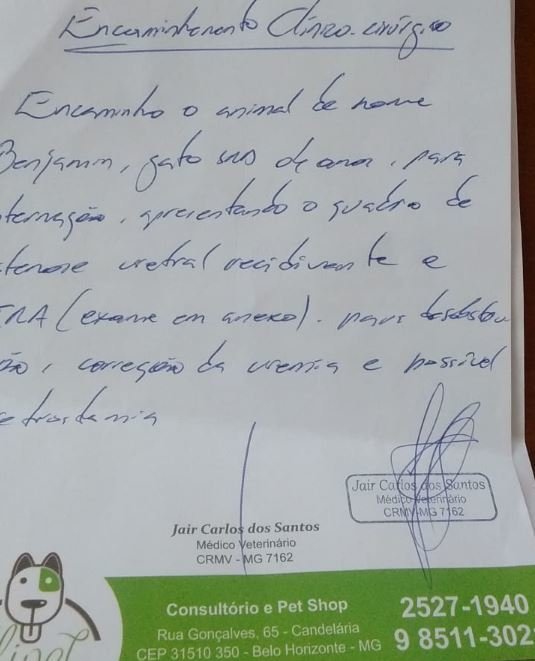 Encaminhamento Clínico-cirúrgico
Encaminho o animal de nome
Benjamin, gato SRD de anos, para
nternação, apresentando o quadro de
stenose uretral recidivante e
IRA (exame em anexo). para desobstru
ão, correção da uremia e possível
etrostomia
Jair Carlos dos Santos
Médico Veterinário
CRMV-MG 7162
Jair Carlos dos Santos
Médico Veterinário
CRMV - MG 7162
Consultório e Pet Shop
Rua Gonçalves, 65 - Candelária
CEP 31510 350 - Belo Horizonte - MG
2527-1940
9 8511-302